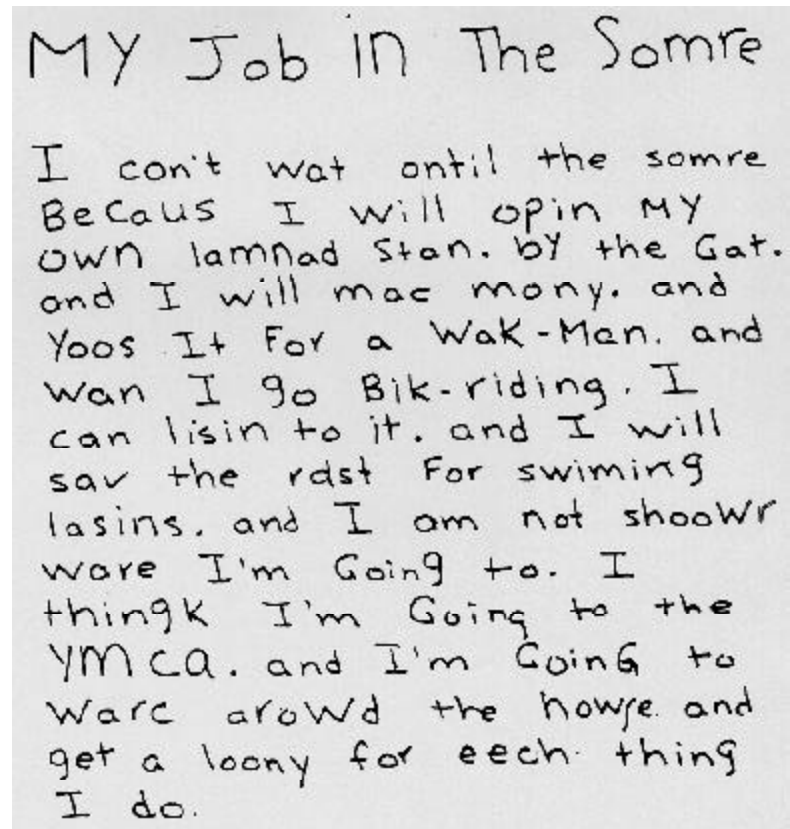 My Job in The Somre
I con't wat ontil the somre
BeCaus I will opin MY
own lamnad Stan. by the Gat.
and I will mac mony. and
Yoos It For a Wak-Man. and
wan I go Bik-riding. I
can lisin to it. and I will
sav the rast For swiming
lasins. and I am not shoowr
ware I'm Going to. I
thingk I'm Going to the
YMCA. and I'm GoinG to
Warc arowd the howse. and
get a loony for eech thing
I do.